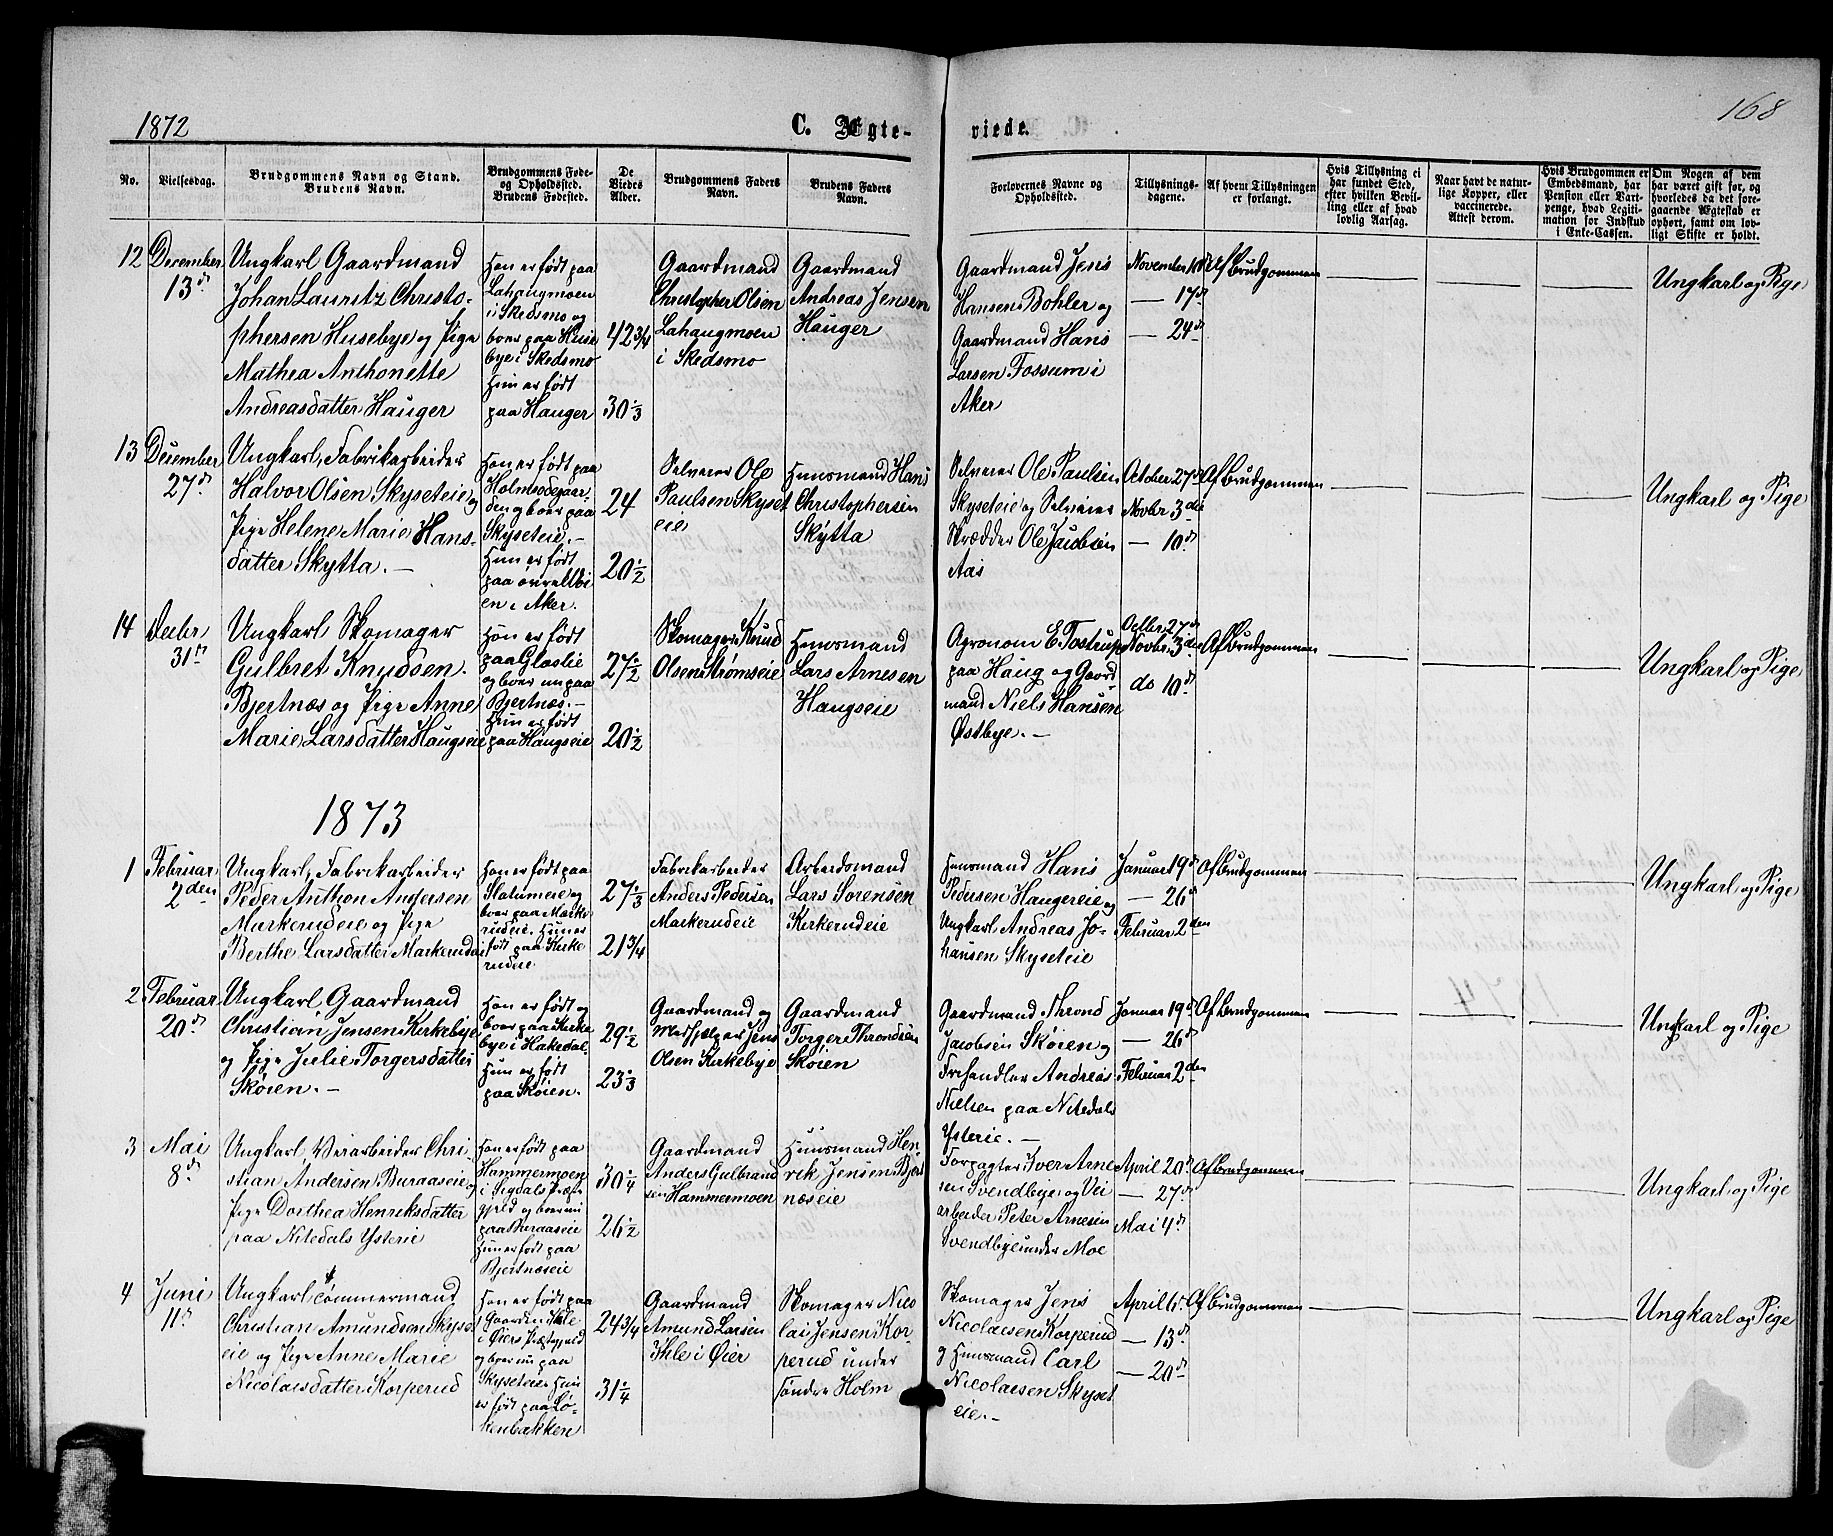 1872
C. Ægte-
viede.
168
No.
Vielsesdag.
Brudgommens Navn og Stand.
Brudens Navn.
Brudgommens Føde-
og Opholdssted.
Brudens Fødested.
De
Viedes
Alder.
Brudgommens Faders
Navn.
Brudens Faders
Navn.
Forlovernes Navne og
Opholdssted.
Tillysnings-
dagene.
Af hvem Tillysningen
er forlangt.
Hvis Tillysning ei
har fundet Sted,
efter hvilken Bevil-
ling eller af hvad
lovlig Aarsag.
Naar havt de natur-
lige Kopper, eller
vaccinerede.
Attest derom.
Hvis Brudgommen er
Embedsmand, har
Pension eller Vart-
penge, hvad Legiti-
mation for Indskud
i Enke-Cassen.
Om Nogen af dem
har været gift før, og
hvorledes da det fore-
gaaende Ægteskab er
ophørt, samt om lov-
ligt Skifte er holdt.
12
December
13d
Ungkarl Gaardmand
Johan Lauritz Christo-
phersen Husebye og Pige
Mathea Anthonette
Andreasdatter Hauger
Han er født paa
Lahaugmoen
i Skedsmo og
boer paa Huse
bye i Skedsmo
Hun er født
paa Hauger
42 3/4
30 1/3
Gaardmand
Christopher Olsen
Lahaugmoen
i Skedsmo
Gaardmand
Andreas Jensen
Hauger
Gaardmand Jens
Hansen Bohler og
Gaardmand Hans
Larsen Fossum i
Aker
November 10d
— 17d
— 24d
Af Brudgommen
Ungkarl og Pige
13
December
27d
Ungkarl, Fabrikarbeider
Halvor Olsen Skyseteie og
Pige Helene Marie Hans-
datter Skytta. —
Han er født paa
Holmsødegaar-
den og boer paa
Skyseteie. —
Hun er født
paa
en i Aker.
24
20 1/2
Selveier Ole
Paulsen Skyset
eie
Huusmand Hans
Christophersen
Skytta
Selveier Ole Paulsen
Skyseteie og Selveier
Skrædder Ole Jacobsen
Aas
October 27d
Novbr 3die
— 10d
Af Brudgommen
Ungkarl og Pige
14
Decbr
31te
Ungkarl Skomager
Gulbret Knudsen
Bjertnæs og Pige Anne
Marie Larsdatter Haugseie
Han er født
paa Glaslie
og boer nu paa
Bjertnæs. —
Hun er født
paa Haugseie
27 1/2
20 1/2
Skomager Knud
Olsen Strømseie
Huusmand
Lars Arnesen
Haugseie
Agronom E. Tostrup
paa Haug og Gaard-
mand Niels Hansen
Østbye. —
Octbr. 27d
Novbr. 3die
do 10d
Af Brudgommen
Ungkarl og Pige
1873
1
Februar
2den
Ungkarl, Fabrikarbeider
Peder Anthon Andersen
Markerudeie og Pige
Berthe Larsdatter Markerudeie
Han er født paa
Slatumeie og
boer paa Marke
rudeie. Hun er
født paa Kirke
rudeie
27 1/3
21 3/4
Fabrikarbeider
Anders Pedersen
Markerudeie
Arbeidsmand
Lars Sørensen
Kirkerudeie
Huusmand Hans
Pedersen Haugereie og
Ungkarl Andreas Jo-
hansen Skyseteie
Januar 19d
— 26d
Februar 2den
Af Brudgommen
Ungkarl og Pige
2
Februar
20d
Ungkarl Gaardmand
Christian Jensen Kirkebye
og Pige Julie Torgersdatter
Skøien. —
Han er født og
boer paa Kirke
bye i Hakedal.
Hun er født
paa Skøien.
29 1/2
23 1/3
Gaardmand og
Medhjelper Jens
Olsen Kirkebye
Gaardmand
Torger Throndsen
Skøien
Gaardmand Thrond
Jacobsen Skøien og
Træhandler Andreas
Nielsen paa Nitedals
Ysterie. —
Januar 19d
— 26d
Februar 2den
Af Brudgommen
Ungkarl og Pige
3
Mai
8d
Ungkarl, Veiarbeider Chri-
stian Andersen Buraaseie og
Pige Dorthea Henriksdatter
paa Nitedals Ysterie
Han er født paa
Hammermoen
i Sigdals Præste
gjeld og boer nu
paa Buraaseie
Hun er født paa
Bjertnæseie
30 1/4
26 1/2
Gaardmand
Anders Gulbrand
sen Hammermoen
Huusmand Hen-
rik Jensen Bjert
næseie
Forpagter Iver Arne
sen Svendbye og Vei
arbeider Peter Arnesen
Svendbye under Moe
April 20d
— 27d
Mai 4d
Af Brudgommen
Ungkarl og Pige
4
Juni
11d
Ungkarl Tømmermand
Christian Amundsen Skyset
eie og Pige Anne Marie
Nicolaisdatter Korperud
Han er født paa
Gaarden Ihle
i Øiers Præstegjeld
og boer nu paa
Skyseteie. Hun
er født paa Lø-
kenbakken
24 3/4
31 1/4
Gaardmand
Amund Larsen
Ihle i Øier
Skomager Nico
lai Jensen Kor
perud under
Søndre Holm
Skomager Jens
Nicolaisen Korperud
og Huusmand Carl
Nicolaisen Skyset
eie. —
April 6d
— 13d
— 20d
Af Brudgommen
Ungkarl og Pige